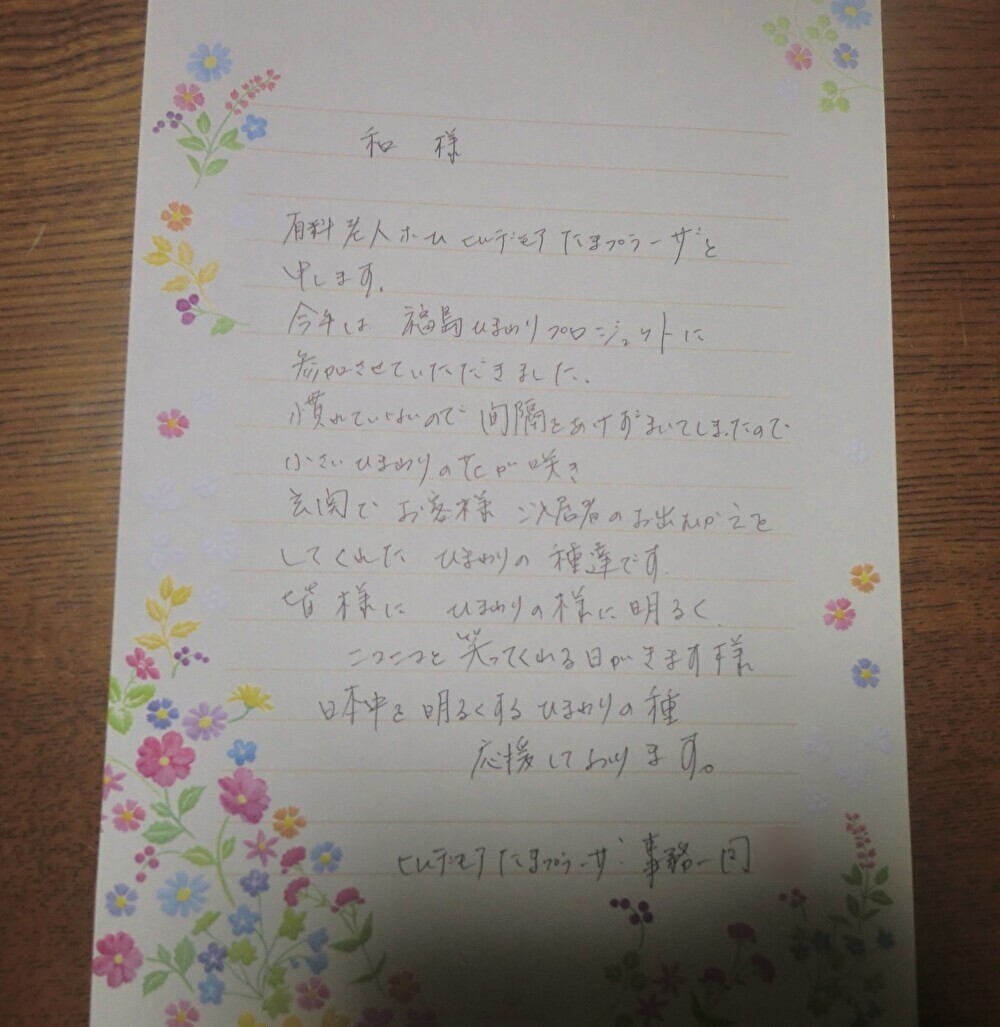 和 様
有料老人ホーム ヒルデモア たまプラーザと
申します。
今年は 福島ひまわりプロジェクトに
参加させていただきました。
慣れていないので 間隔をあけずまいてしまったので
小さいひまわりの花が咲き
玄関で お客様 ご入居者のお出むかえを
してくれた ひまわりの 種達です。
皆様に ひまわりの様に明るく
ニコニコと 笑ってくれる日がきます様
日本中を 明るくする ひまわりの種
応援しております。
ヒルデモア たまプラーザ 事務一同